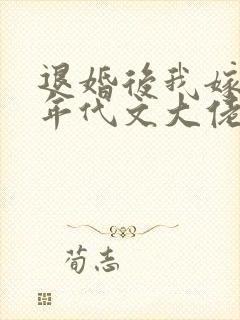 退婚後我嫁
年代文大佬
荀志